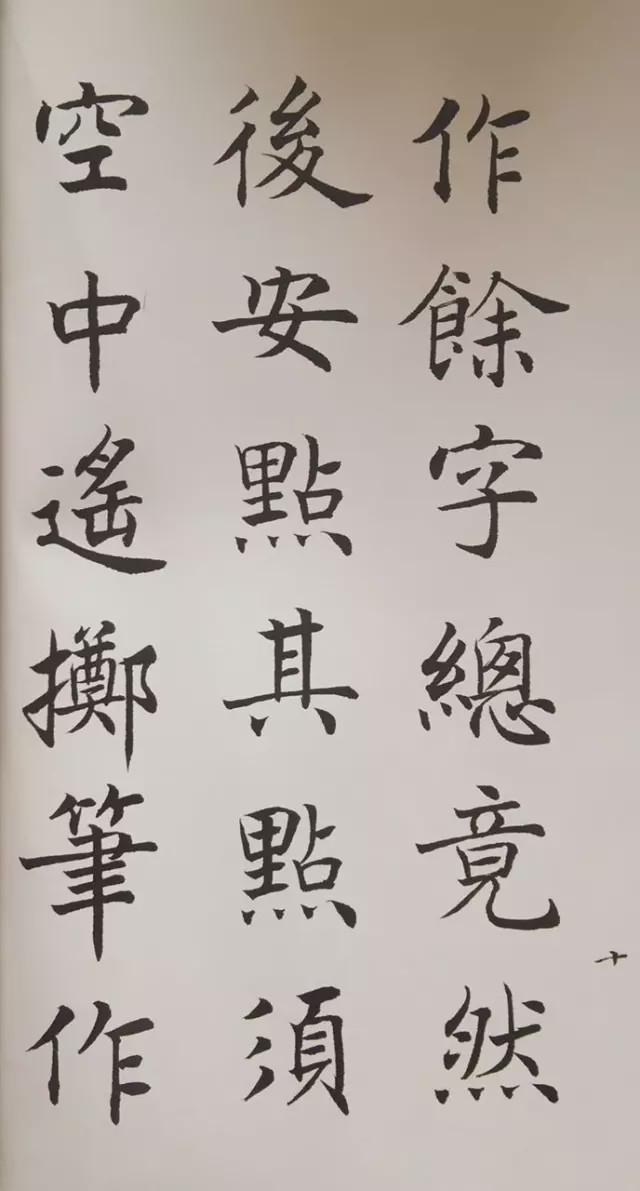 作餘字總竟然
後安點其點須
空中遙擲筆作
十